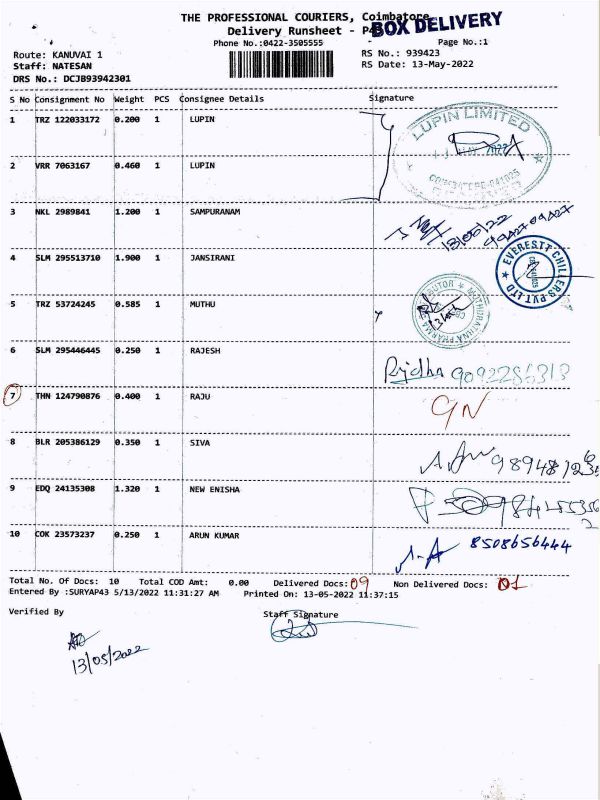 THE PROFESSIONAL COURIERS, Coimbatore
Delivery Runsheet - P43
BOX DELIVERY
Phone No.:0422-3505555
Page No.:1
Route: KANUVAI 1
RS No.: 939423
Staff: NATESAN
RS Date: 13-May-2022
DRS No.: DCJB93942301
S No Consignment No Weight PCS Consignee Details Signature
1 TRZ 122033172 0.200 1 LUPIN
LUPIN LIMITED
2 VRR 7063167 0.460 1 LUPIN
3 NKL 2989841 1.200 1 SAMPURANAM
13/05/22
4 SLM 295513710 1.900 1 JANSIRANI
EVERESTT CHILLERS PVT LTD
5 TRZ 53724245 0.585 1 MUTHU
6 SLM 295446445 0.250 1 RAJESH
9092286313
7 THN 124790876 0.400 1 RAJU
9N
8 BLR 205386129 0.350 1 SIVA
9 EDQ 24135308 1.320 1 NEW ENISHA
10 COK 23573237 0.250 1 ARUN KUMAR
8508656444
Total No. Of Docs: 10 Total COD Amt: 0.00 Delivered Docs: 09 Non Delivered Docs: 01
Entered By :SURYAP43 5/13/2022 11:31:27 AM Printed On: 13-05-2022 11:37:15
Verified By
Staff Signature
13/05/2022